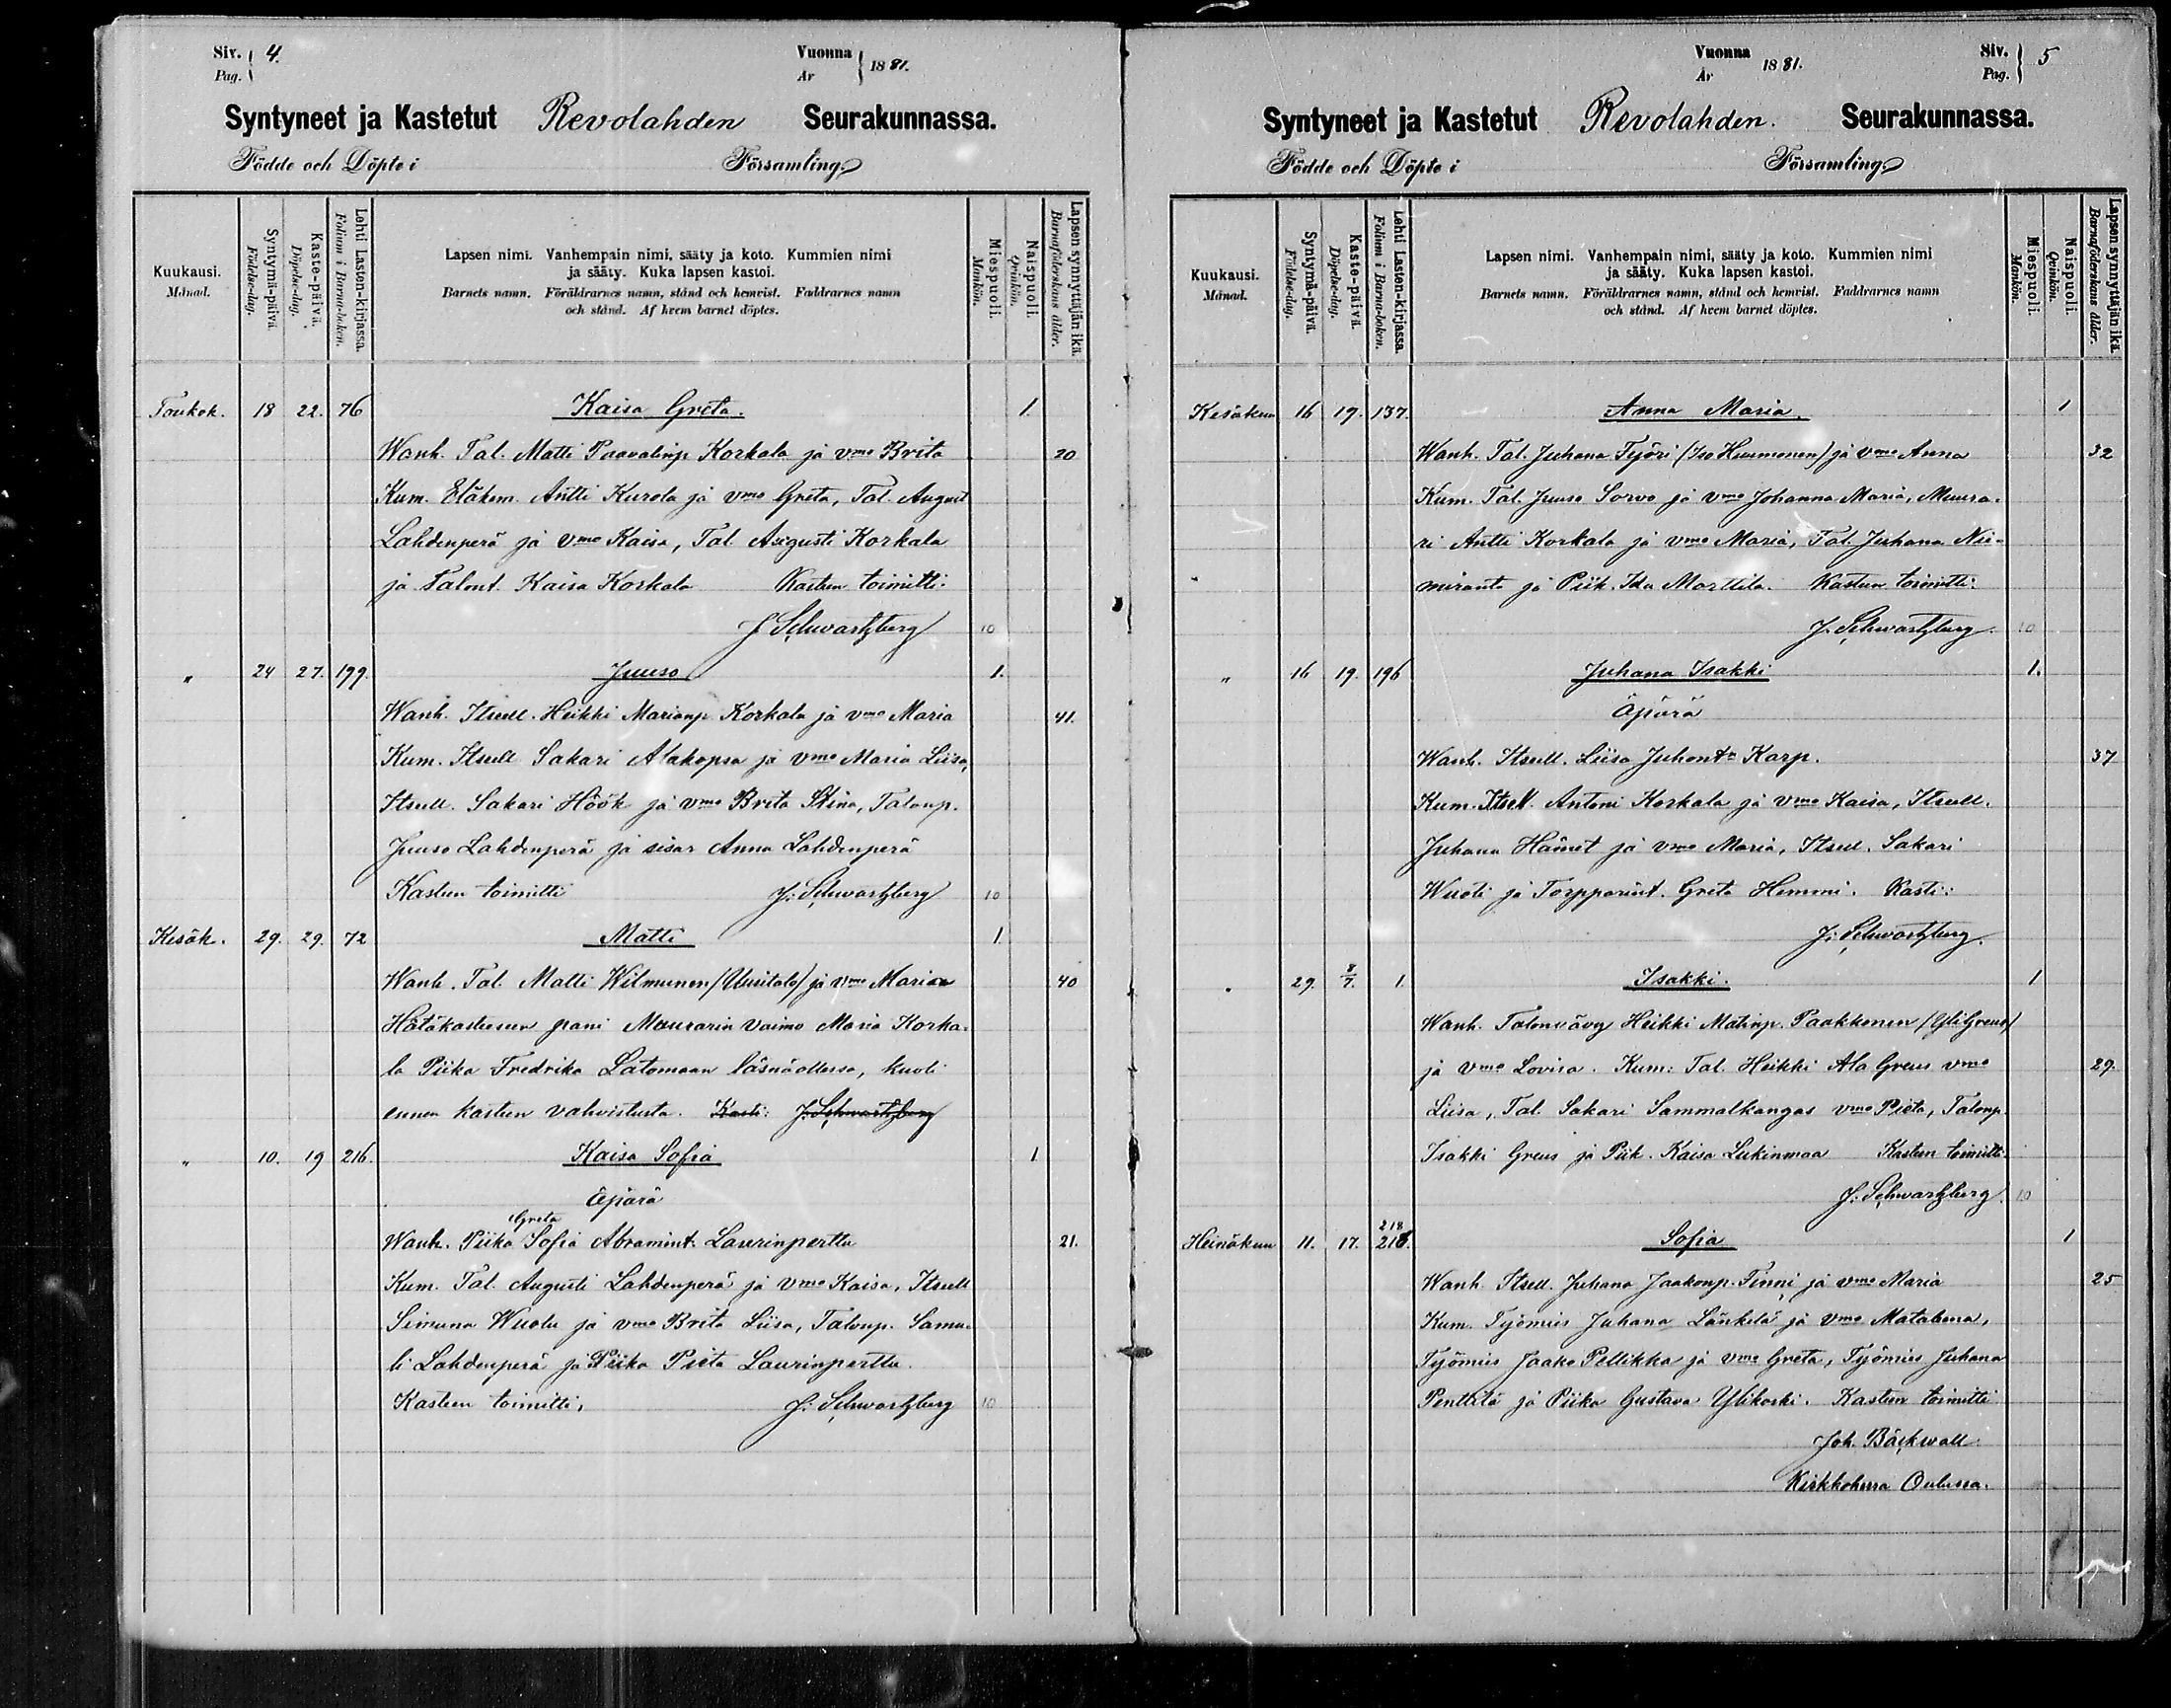 Siv. 4.
Pag.
Vuonna 1881.
År
Syntyneet ja Kastetut Revolahden Seurakunnassa.
Födde och Döpte i Församling
Kuukausi.
Månad.
Syntymä-päivä.
Födelse-dag.
Kaste-päivä.
Döpelse-dag.
Lehti Lasten-kirjassa.
Folium i Barna-boken.
Lapsen nimi. Vanhempain nimi, sääty ja koto. Kummien nimi
ja sääty. Kuka lapsen kastoi.
Barnets namn. Föräldrarnes namn, stånd och hemvist. Faddrarnes namn
och stånd. Af hvem barnet döptes.
Miespuoli.
Mankön.
Naispuoli.
Qvinkön.
Lapsen synnyttäjän ikä.
Barnaföderskans ålder.
Toukok. 18 22. 76 Kaisa Greta. 1.
Wanh. Tal. Matti Paavalinp Korkala ja vmo Brita 20
Kum. Eläkem. Antti Kurola ja vmo Greta, Tal. August
Lahdenperä ja vmo Kaisa, Tal. Augusti Korkala
ja Talont. Kaisa Korkala Kasteen toimitti:
J Schwartzberg 10
" 24 27. 199. Juuso 1.
Wanh. Itsell. Heikki Marianp Korkala ja vmo Maria 41.
Kum. Itsell Sakari Alakopsa ja vmo Maria Liisa,
Itsell. Sakari Höök ja vmo Brita Stina, Talonp.
Juuso Lahdenperä ja sisar Anna Lahdenperä
Kasteen toimitti J: Schwartzberg 10
Kesäk. 29. 29. 72 Matti 1.
Wanh. Tal. Matti Wilmunen (Uusitalo) ja vmo Maria 40
Hätäkasteesen pani Muurarin vaimo Maria Korka-
la Piika Fredrika Latomaan läsnäollessa, kuoli
ennen kasteen vahvistusta. Kasti: J. Schwartzberg
" 10. 19 216. Kaisa Sofia 1
Äpärä
Greta
Wanh. Piika Sofia Abramint. Laurinperttu 21.
Kum. Tal. Augusti Lahdenperä ja vmo Kaisa, Itsell
Simuna Wuolu ja vmo Brita Liisa, Talonp. Samu-
li Lahdenperä ja Piika Pieta Laurinperttu.
Kasteen toimitti, J: Schwartzberg 10
Vuonna 1881.
År
Siv. 5
Pag.
Syntyneet ja Kastetut Revolahden. Seurakunnassa.
Födde och Döpte i Församling
Kuukausi.
Månad.
Syntymä-päivä.
Födelse-dag.
Kaste-päivä.
Döpelse-dag.
Lehti Lasten-kirjassa.
Folium i Barna-boken.
Lapsen nimi. Vanhempain nimi, sääty ja koto. Kummien nimi
ja sääty. Kuka lapsen kastoi.
Barnets namn. Föräldrarnes namn, stånd och hemvist. Faddrarnes namn
och stånd. Af hvem barnet döptes.
Miespuoli.
Mankön.
Naispuoli.
Qvinkön.
Lapsen synnyttäjän ikä.
Barnaföderskans ålder.
Kesäkuu 16 19. 137. Anna Maria. 1
Wanh. Tal. Juhana Työri (Iso Hummonen) ja vmo Anna 32
Kum. Tal. Juuso Sorvo ja vmo Johanna Maria, Muura-
ri Antti Korkala ja vmo Maria, Tal. Juhana Nii-
miranta ja Piik. Ida Marttila. Kasteen toimitti:
J. Schwartzberg. 10
" 16 19. 196 Juhana Isakki 1.
Äpärä
Wanh. Itsell. Liisa Juhontr Karp. 37
Kum. Itsell. Antoni Korkala ja vmo Kaisa, Itsell.
Juhana Hämet ja vmo Maria, Itsell. Sakari
Wuoti ja Torpparint. Greta Hemmi. Kasti:
J: Schwartzberg.
" 29. 8/7. 1. Isakki. 1
Wanh. Talonvävy Heikki Matinp. Paakkonen (YliGreus)
ja vmo Lovisa. Kum: Tal. Heikki Ala Greus vmo 29.
Liisa, Tal. Sakari Sammalkangas vmo Pieta, Talonp.
Isakki Greus ja Piik. Kaisa Lukinmaa Kasteen toimitti.
J: Schwartzberg. 10
218
Heinäkuu 11. 17. 216. Sofia 1
Wanh Itsell. Juhana Jaakonp. Finni ja vmo Maria 25
Kum. Työmies Juhana Länkelä ja vmo Matalena,
Työmies Jaako Pellikka ja vmo Greta, Työmies Juhana
Penttilä ja Piika Gustava Ylikoski. Kasteen toimitti
Joh. Bäckwall
Kirkkoherra Oulussa.